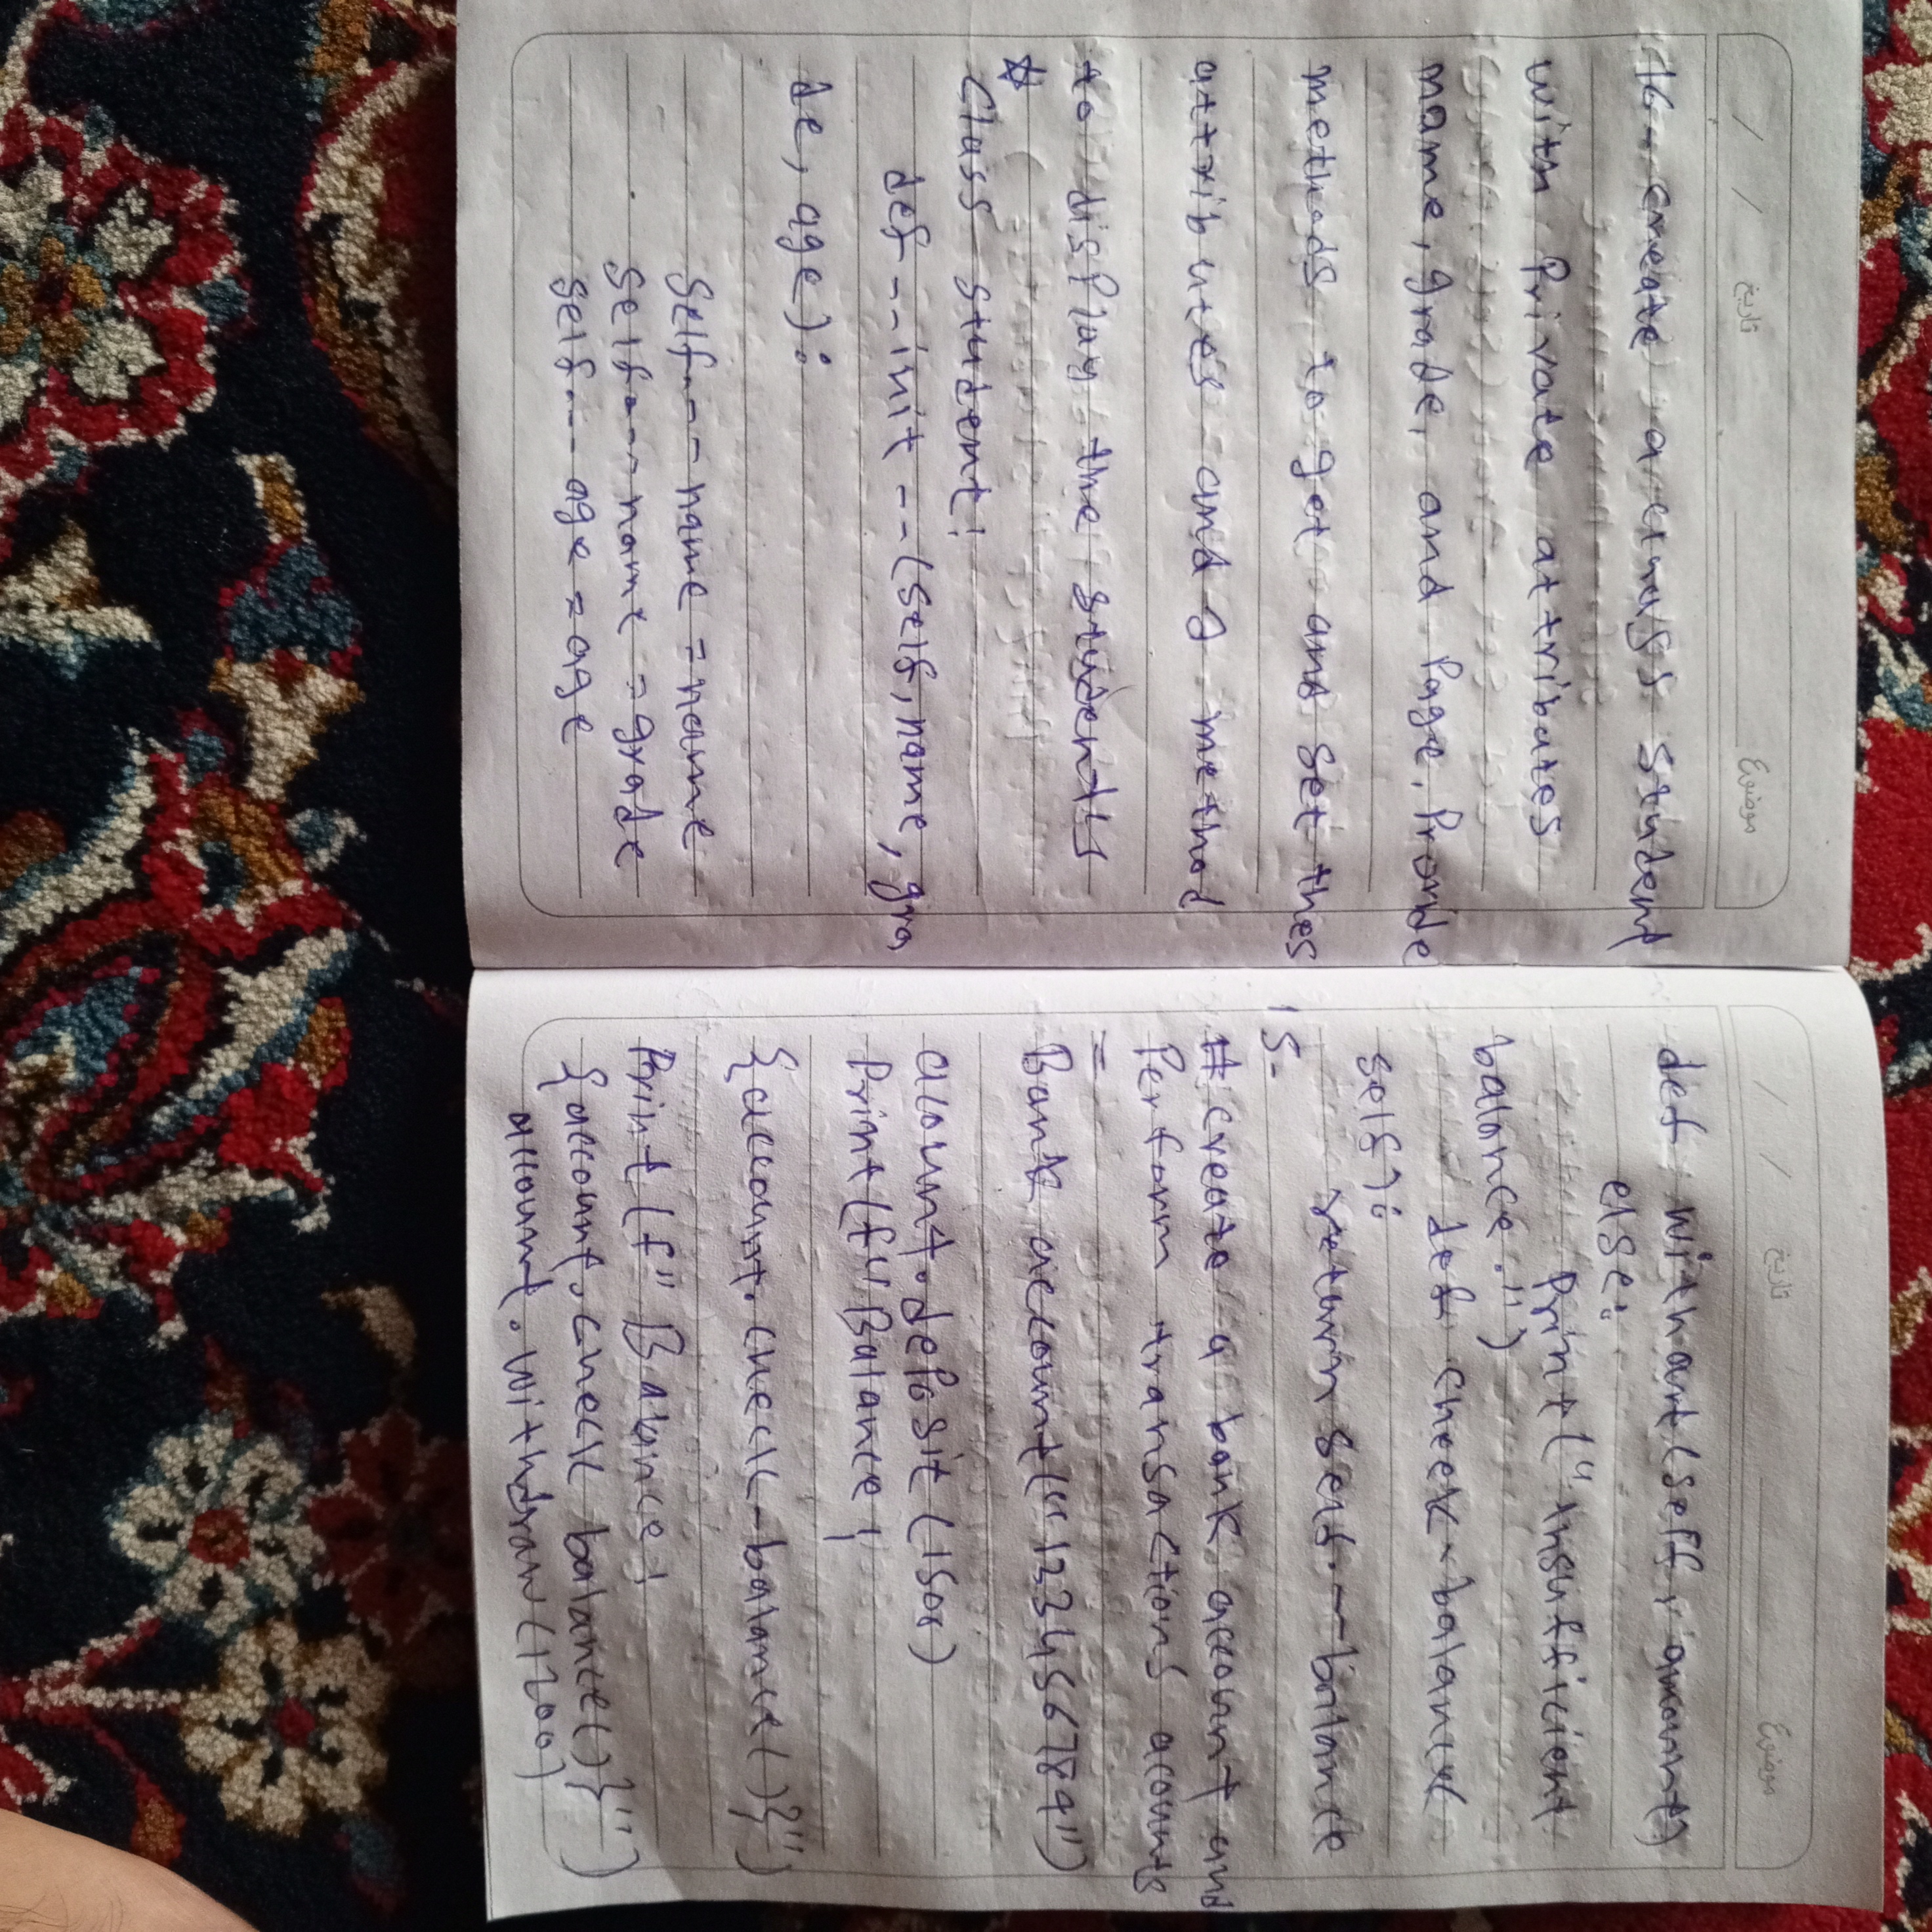 تاریخ / / موضوع
16- create a cluass student
with Private attribates
mame, grade, and Page. Pronide
methods to get ans set thes
attributes and a method
to disPlay the students
☆
Class student:
def --init --(self, name, gra
de, age):
self.--name = name
self.--name = grade
self.-- age = age
تاریخ / / موضوع
def withart(seff, amount)
else:
Print("insufficient
balance.")
def check-balance
self):
return self.--balance
's-
# create a bank account and
Perform transactions acounts
=
Bank account("123456789")
account.deposit(1500)
Print(f"Balance:
{account.check-balance()}")
Print(f"Balance:
{account.check balance()}")
account.withdraw(1200)